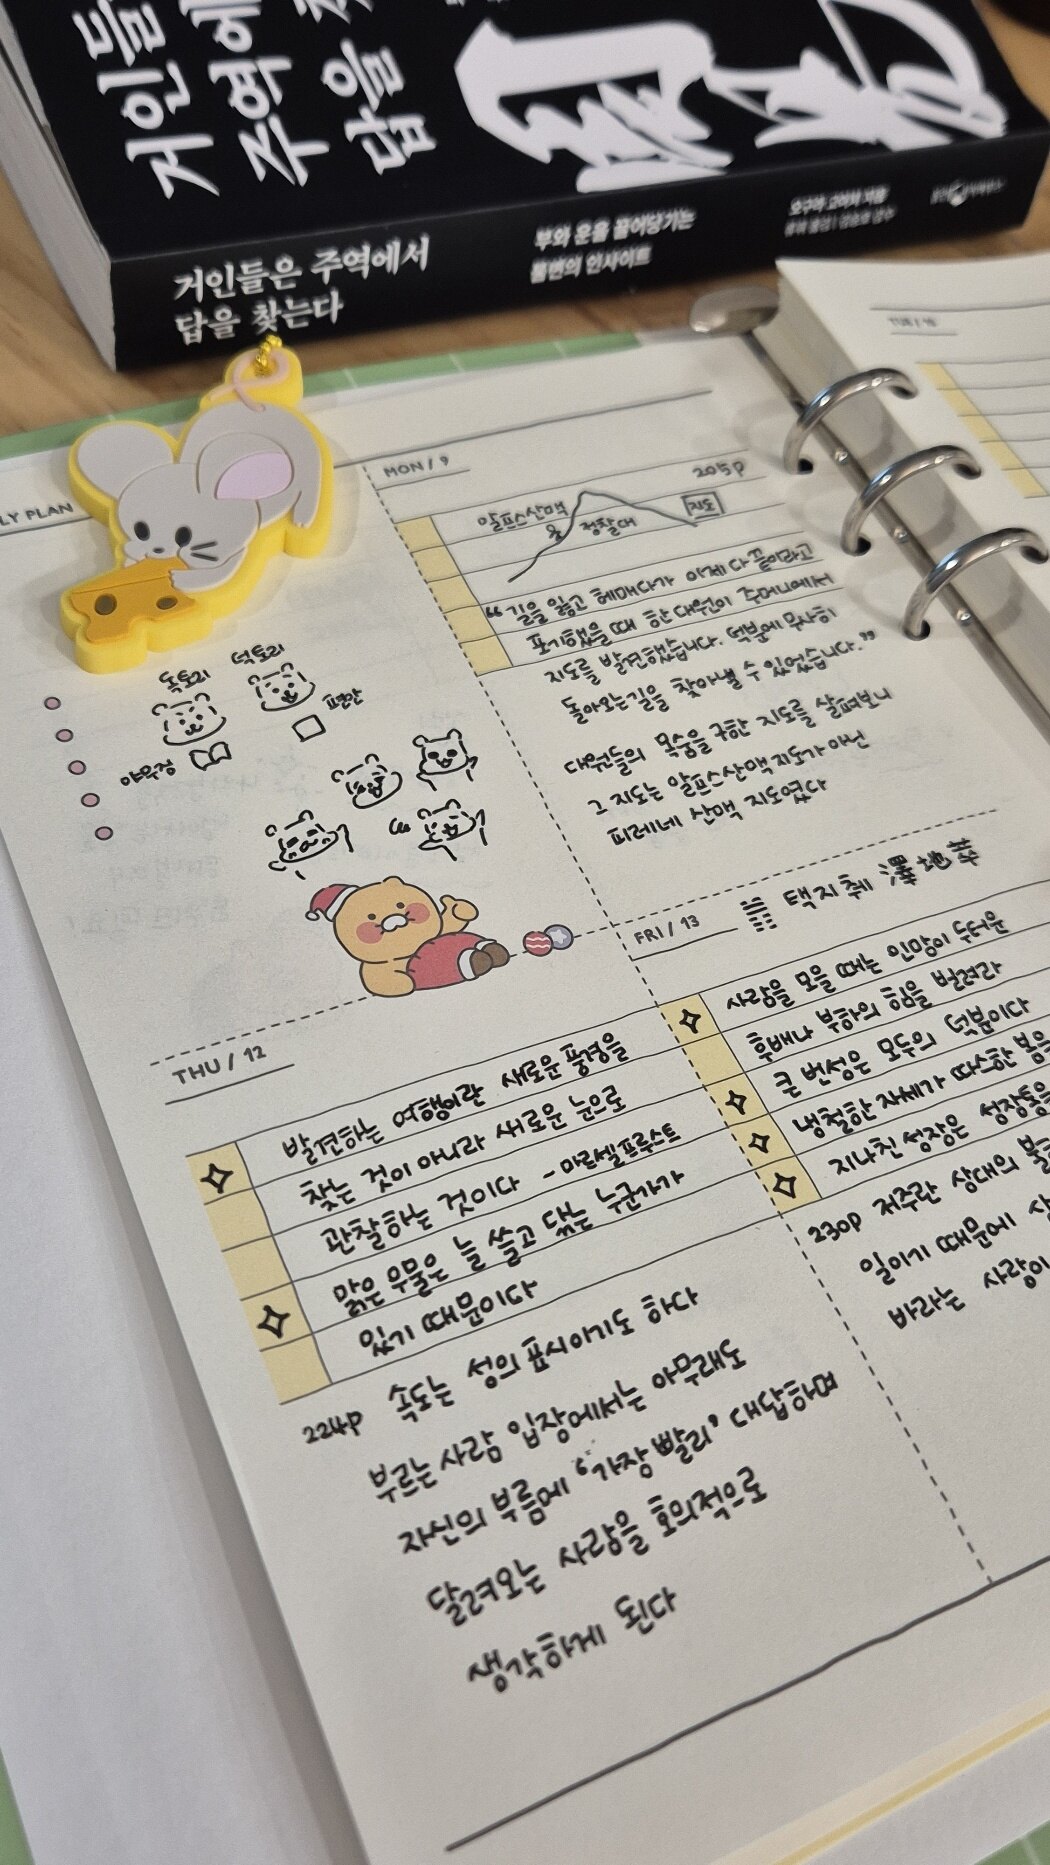 거인들
주역에
답을
거인들은 주역에서
답을 찾는다
부와 운을 끌어당기는
불변의 인사이트
LY PLAN
MON / 9
205p
알프스산맥
정찰대
지도
"길을 잃고 헤매다가 이제 다 끝이라고
포기했을 때 한 대원이 주머니에서
지도를 발견했습니다. 덕분에 무사히
돌아오는 길을 찾아낼 수 있었습니다."
대원들의 목숨을 구한 지도를 살펴보니
그 지도는 알프스산맥 지도가 아닌
피레네 산맥 지도였다
TUE / 10
독토리
덕토리
편안
THU / 12
발견하는 여행이란 새로운 풍경을
찾는 것이 아니라 새로운 눈으로
관찰하는 것이다 - 마르셀프루스트
맑은 우물은 늘 쓸고 닦는 누군가가
있기 때문이다
224p 속도는 성의 표시이기도 하다
부르는 사람 입장에서는 아무래도
자신의 부름에 '가장 빨리' 대답하며
달려오는 사람을 호의적으로
생각하게 된다
FRI / 13
택지췌 澤地萃
사람을 모을 때는 인망이 두터운
후배나 부하의 힘을 빌려라
큰 번성은 모두의 덕분이다
냉철한 자세가 따스한 봄을
지나친 성장은 성장통을
230p 저주란 상대의
일이기 때문에
바라는 사람이